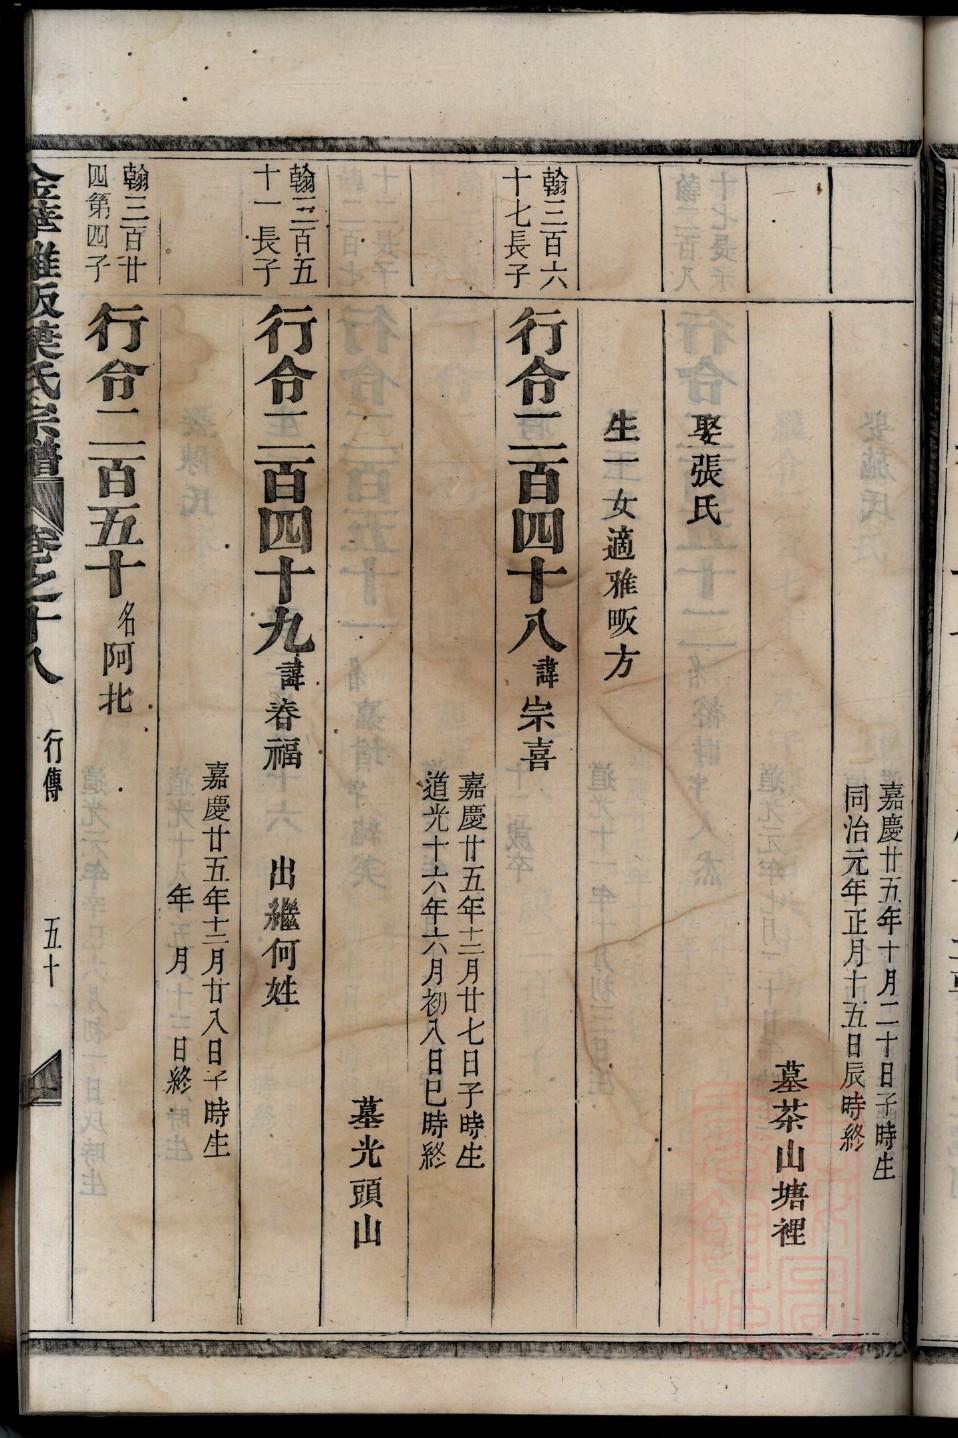 嘉慶廿五年十月二十日子時生
同治元年正月十五日辰時終
墓茶山塘裡
娶張氏
生一女適雅畈方
翰三百六
十七長子
行令二百四十八諱宗喜
嘉慶廿五年十二月廿七日子時生
道光十六年六月初八日巳時終
墓光頭山
翰三百五
十一長子
行令二百四十九諱春福 出繼何姓
嘉慶廿五年十二月廿八日子時生
年 月 日終
翰三百廿
四第四子
行令二百五十名阿北
金華雅畈葉氏宗譜 卷之十八 行傳 五十